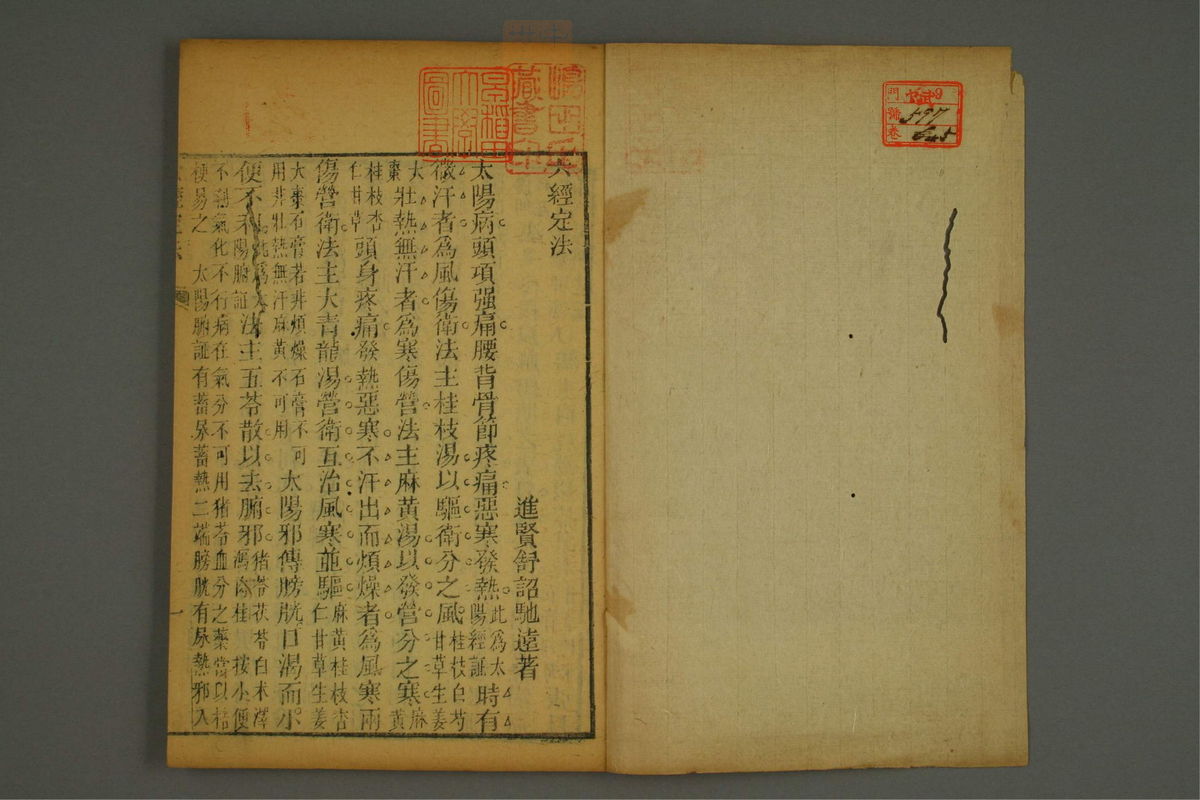 六經定法
進賢舒詔馳遠著
太陽病頭項强痛腰背骨節疼痛惡寒發熱此爲太陽經證時有
微汗者爲風傷衛法主桂枝湯以驅衛分之風桂枝白芍甘草生姜
大棗壯熱無汗者爲寒傷營法主麻黃湯以發營分之寒麻黃
桂枝杏仁甘草頭身疼痛發熱惡寒不汗出而煩燥者爲風寒兩
傷營衛法主大青龍湯營衛互治風寒並驅麻黃桂枝杏仁甘草生姜
大棗石膏若非煩燥石膏不可用非壯熱無汗麻黃不可用太陽邪傳膀胱口渴而小
便不利此爲太陽腑証法主五苓散以去腑邪猪苓茯苓白术澤瀉肉桂按小便
不利氣化不行病在氣分不可用猪苓血分之藥當以桔
梗易之太陽腑証有蓄尿蓄熱二端膀胱有尿熱邪入
一
早稻田大學圖書
藏書印
門
號597
卷